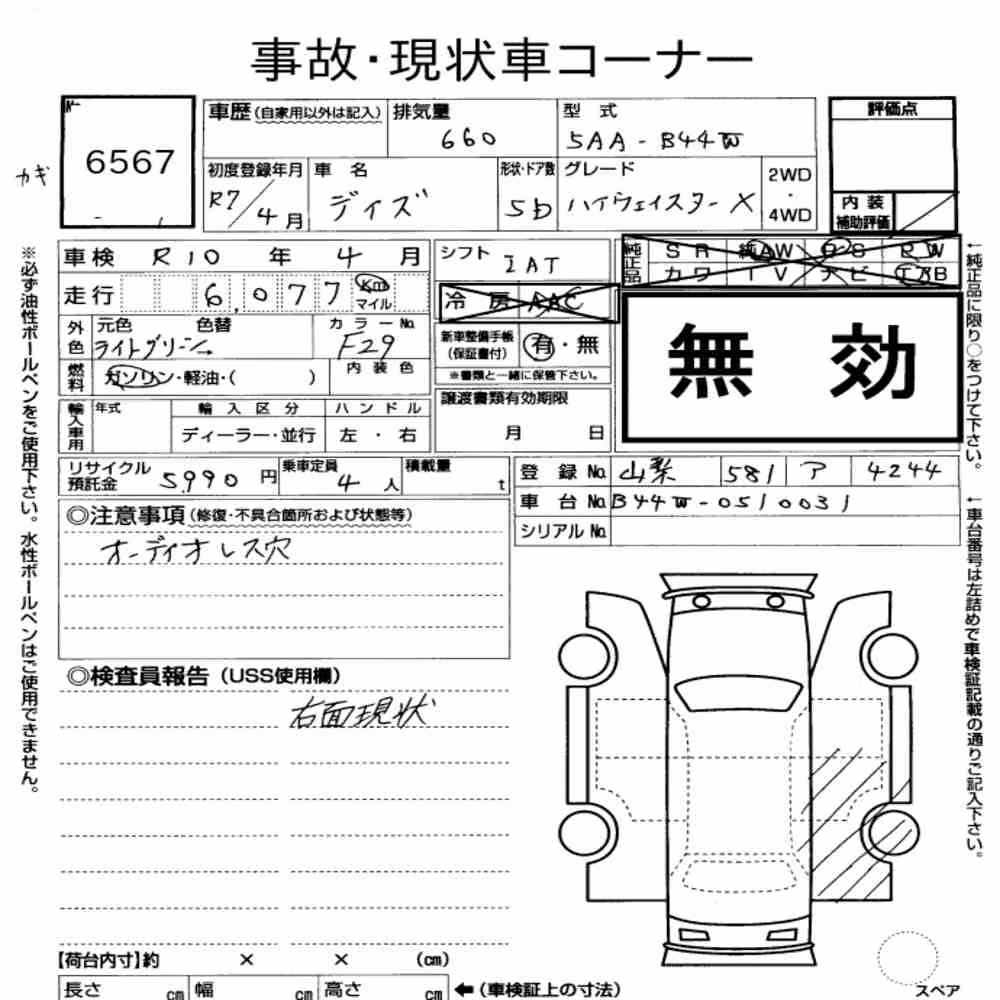 事故・現状車コーナー
6567
カギ
車歴(自家用以外は記入)
排気量
660
型式
5AA-B44W
評価点
初度登録年月
R7/4月
車名
デイズ
形状・ドア数
5D
グレード
ハイウェイスターX
2WD
・
4WD
内装
補助評価
車検 R10年 4月
シフト
IAT
純正品
SR 純AW PS RW
カワ TV ナビ エアB
走行 6,077 Km
マイル
冷房 AAC
無効
外色
元色 色替
ライトグリーン→
カラーNo.
F29
新車整備手帳
(保証書付)
有・無
※書類と一緒に保管下さい。
燃料
ガソリン・軽油・( )
内装色
輸入車用
年式
輸入区分
ディーラー・並行
ハンドル
左・右
譲渡書類有効期限
月 日
リサイクル
預託金
5,990円
乗車定員
4人
積載量
t
登録No. 山梨 581 ア 4244
車台No. B44W-0510031
シリアルNo.
◎注意事項(修復・不具合箇所および状態等)
オーディオレス穴
◎検査員報告(USS使用欄)
右面現状
【荷台内寸】約 × × (cm)
長さ cm 幅 cm 高さ cm ←(車検証上の寸法)
スペア
※必ず油性ボールペンをご使用下さい。水性ボールペンはご使用できません。
←純正品に限り○をつけて下さい。
←車台番号は左詰めで車検証記載の通りご記入下さい。